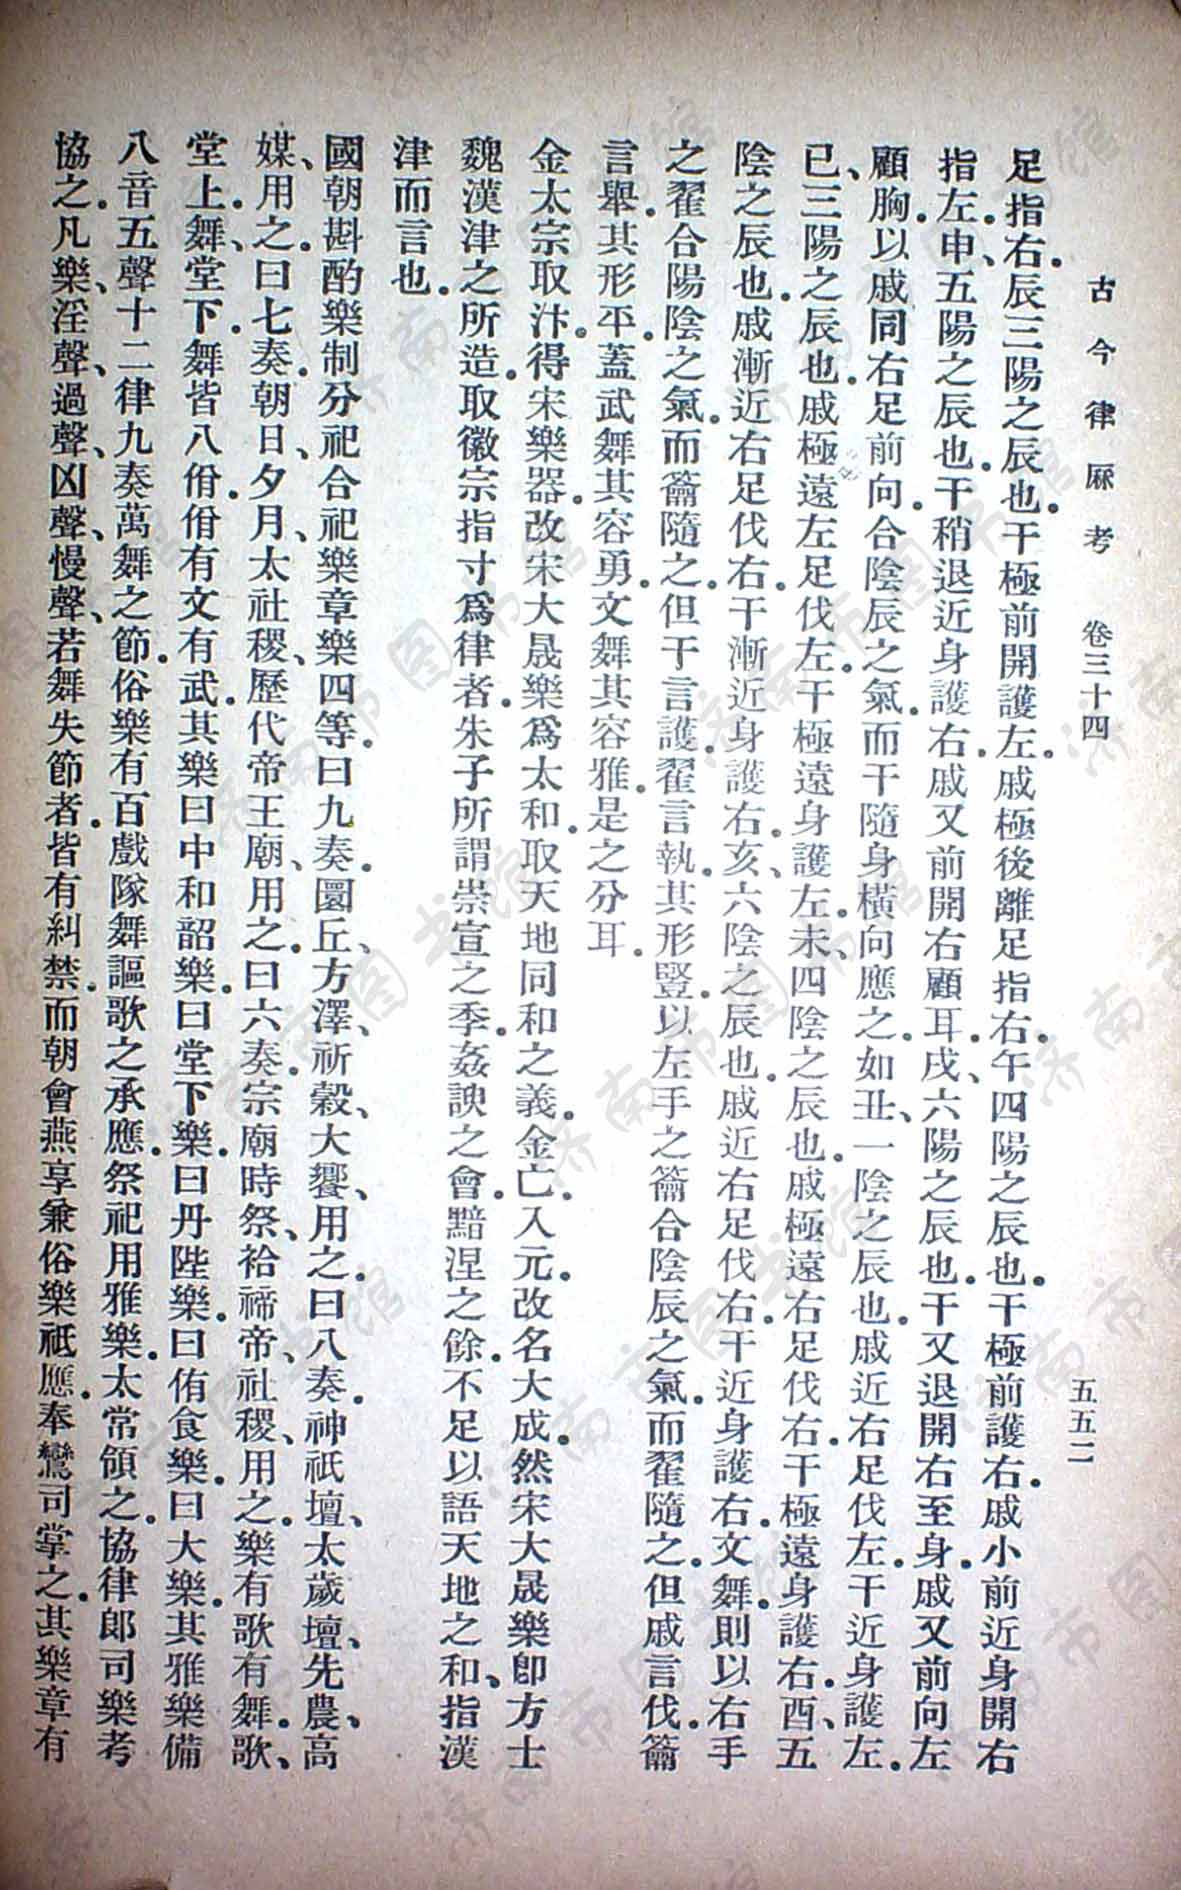 古今律厤考　卷三十四　五五二
足指右。辰三陽之辰也。干極前開護左。戚極後離足指右。午四陽之辰也。干極前護右。戚小前近身開右
指左。申、五陽之辰也。干稍退近身護右。戚又前開右顧耳。戌、六陽之辰也。干又退開右至身。戚又前向左
顧胸。以戚同右足前向。合陰辰之氣。而干隨身橫向應之。如丑、一陰之辰也。戚近右足伐左。干近身護左。
巳、三陽之辰也。戚極遠左足伐左。干極遠身護左。未、四陰之辰也。戚極遠右足伐右。干極遠身護右。酉、五
陰之辰也。戚漸近右足伐右。干漸近身護右。亥、六陰之辰也。戚近右足伐右。干近身護右。文舞則以右手
之翟合陽陰之氣。而籥隨之。但干言護。翟言執。其形豎。以左手之籥合陰辰之氣。而翟隨之。但戚言伐。籥
言舉。其形平。蓋武舞其容勇。文舞其容雅。是之分耳。
金太宗取汴。得宋樂器。改宋大晟樂爲太和。取天地同和之義。金亡。入元。改名大成。然宋大晟樂卽方士
魏漢津之所造。取徽宗指寸爲律者。朱子所謂崇宣之季。姦諛之會。黯涅之餘。不足以語天地之和、指漢
津而言也。
國朝斟酌樂制分祀合祀樂章樂四等。曰九奏。圜丘、方澤、祈穀、大饗、用之。曰八奏。神祇壇、太歲壇、先農、高
媒、用之。曰七奏。朝日、夕月、太社稷、歷代帝王廟、用之。曰六奏。宗廟時祭、祫禘帝、社稷、用之。樂有歌有舞。歌、
堂上。舞、堂下。舞皆八佾。佾有文有武。其樂曰中和韶樂。曰堂下樂。曰丹陛樂。曰侑食樂。曰大樂。其雅樂備
八音五聲十二律九奏萬舞之節。俗樂有百戲隊舞謳歌之承應。祭祀用雅樂。太常領之。協律郎司樂考
協之。凡樂、淫聲、過聲、凶聲、慢聲、若舞失節者。皆有糾禁。而朝會燕享兼俗樂祗應。奉鑾司掌之。其樂章有